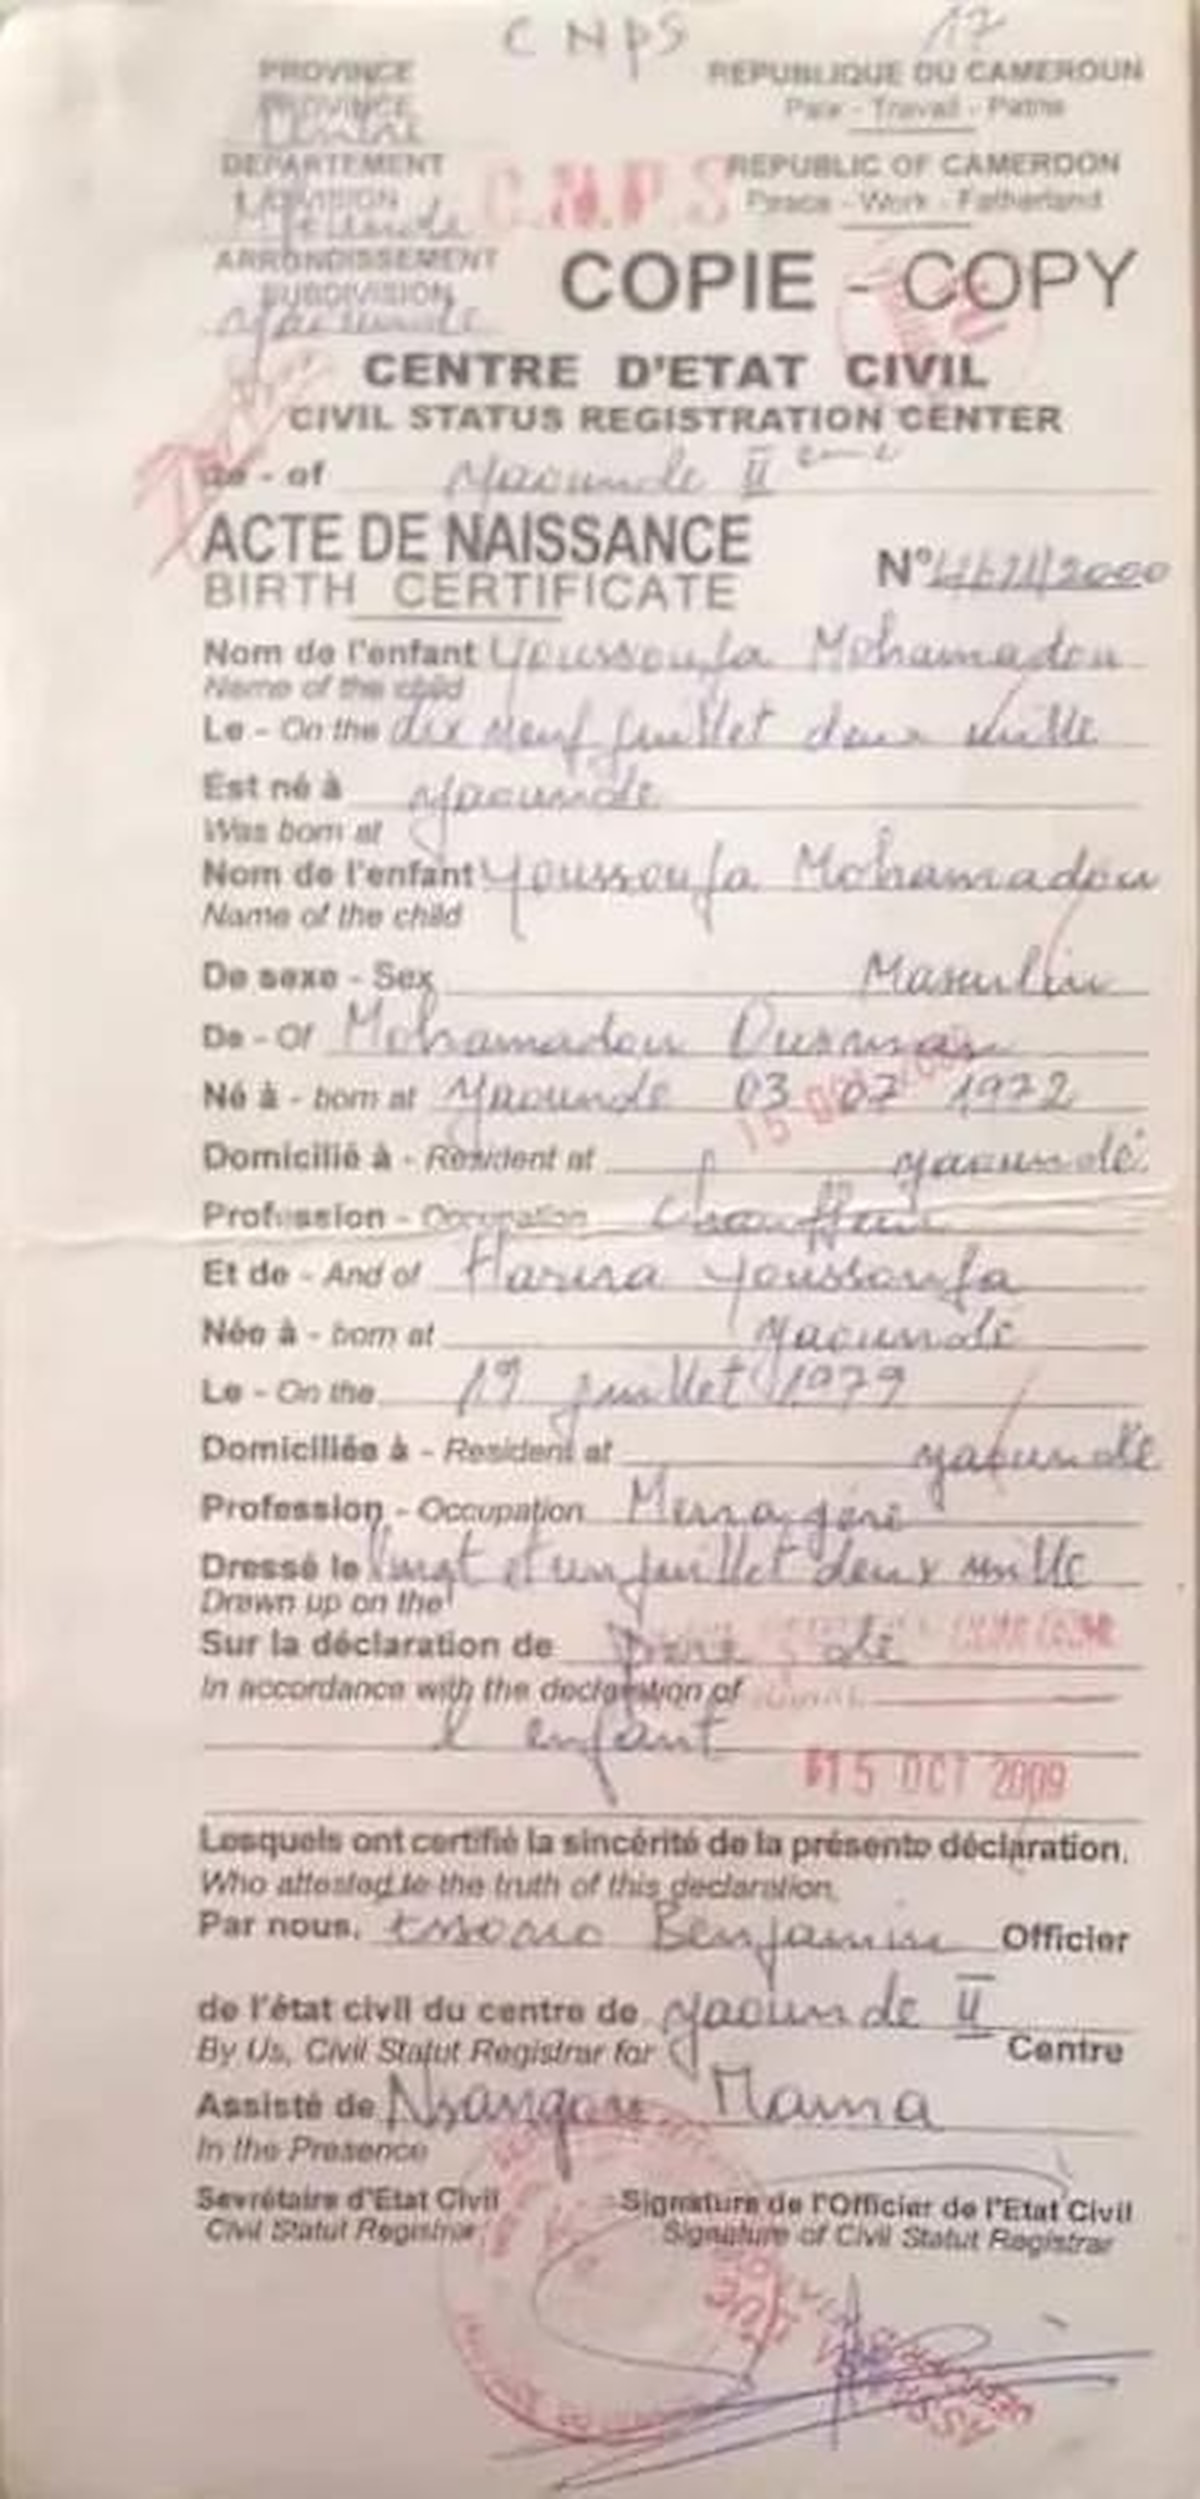 CNPS 17
PROVINCE REPUBLIQUE DU CAMEROUN
PROVINCE Paix - Travail - Patrie
Centre
DEPARTEMENT C.N.P.S REPUBLIC OF CAMEROON
DIVISION Peace - Work - Fatherland
ARRONDISSEMENT COPIE - COPY
SUBDIVISION
Yaounde
CENTRE D'ETAT CIVIL
CIVIL STATUS REGISTRATION CENTER
de - of Yaounde II eme
ACTE DE NAISSANCE
BIRTH CERTIFICATE N° /2000
Nom de l'enfant Youssoufa Mohamadou
Name of the child
Le - On the dix neuf juillet deux mille
Est né à Yaounde
Was born at
Nom de l'enfant Youssoufa Mohamadou
Name of the child
De sexe - Sex Masculin
De - Of Mohamadou Ousman
Né à - born at Yaounde 03 07 1972
Domicilié à - Resident at Yaoundé
Profession - Occupation Chauffeur
Et de - And of Youssoufa
Née à - born at Yaoundé
Le - On the 19 juillet 1979
Domiciliée à - Resident at Yaoundé
Profession - Occupation Menagère
Dressé le Vingt et un juillet deux mille
Drawn up on the
Sur la déclaration de Père de
In accordance with the declaration of
l'enfant
15 OCT 2009
Lesquels ont certifié la sincérité de la présente déclaration.
Who attested to the truth of this declaration.
Par nous, Benjamin Officier
de l'état civil du centre de Yaounde II
By Us, Civil Statut Registrar for Centre
Assisté de Mama
In the Presence
Sevrétaire d'Etat Civil Signature de l'Officier de l'Etat Civil
Civil Statut Registrar Signature of Civil Statut Registrar